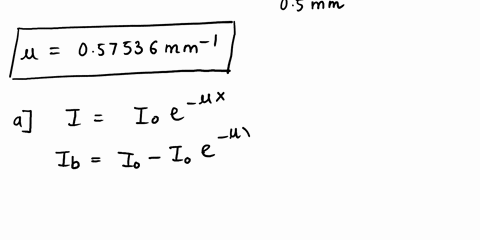 0.5 mm
μ = 0.57536 mm⁻¹
a] I = I₀ e^(-μx)
I_b = I₀ - I₀ e^(-μ